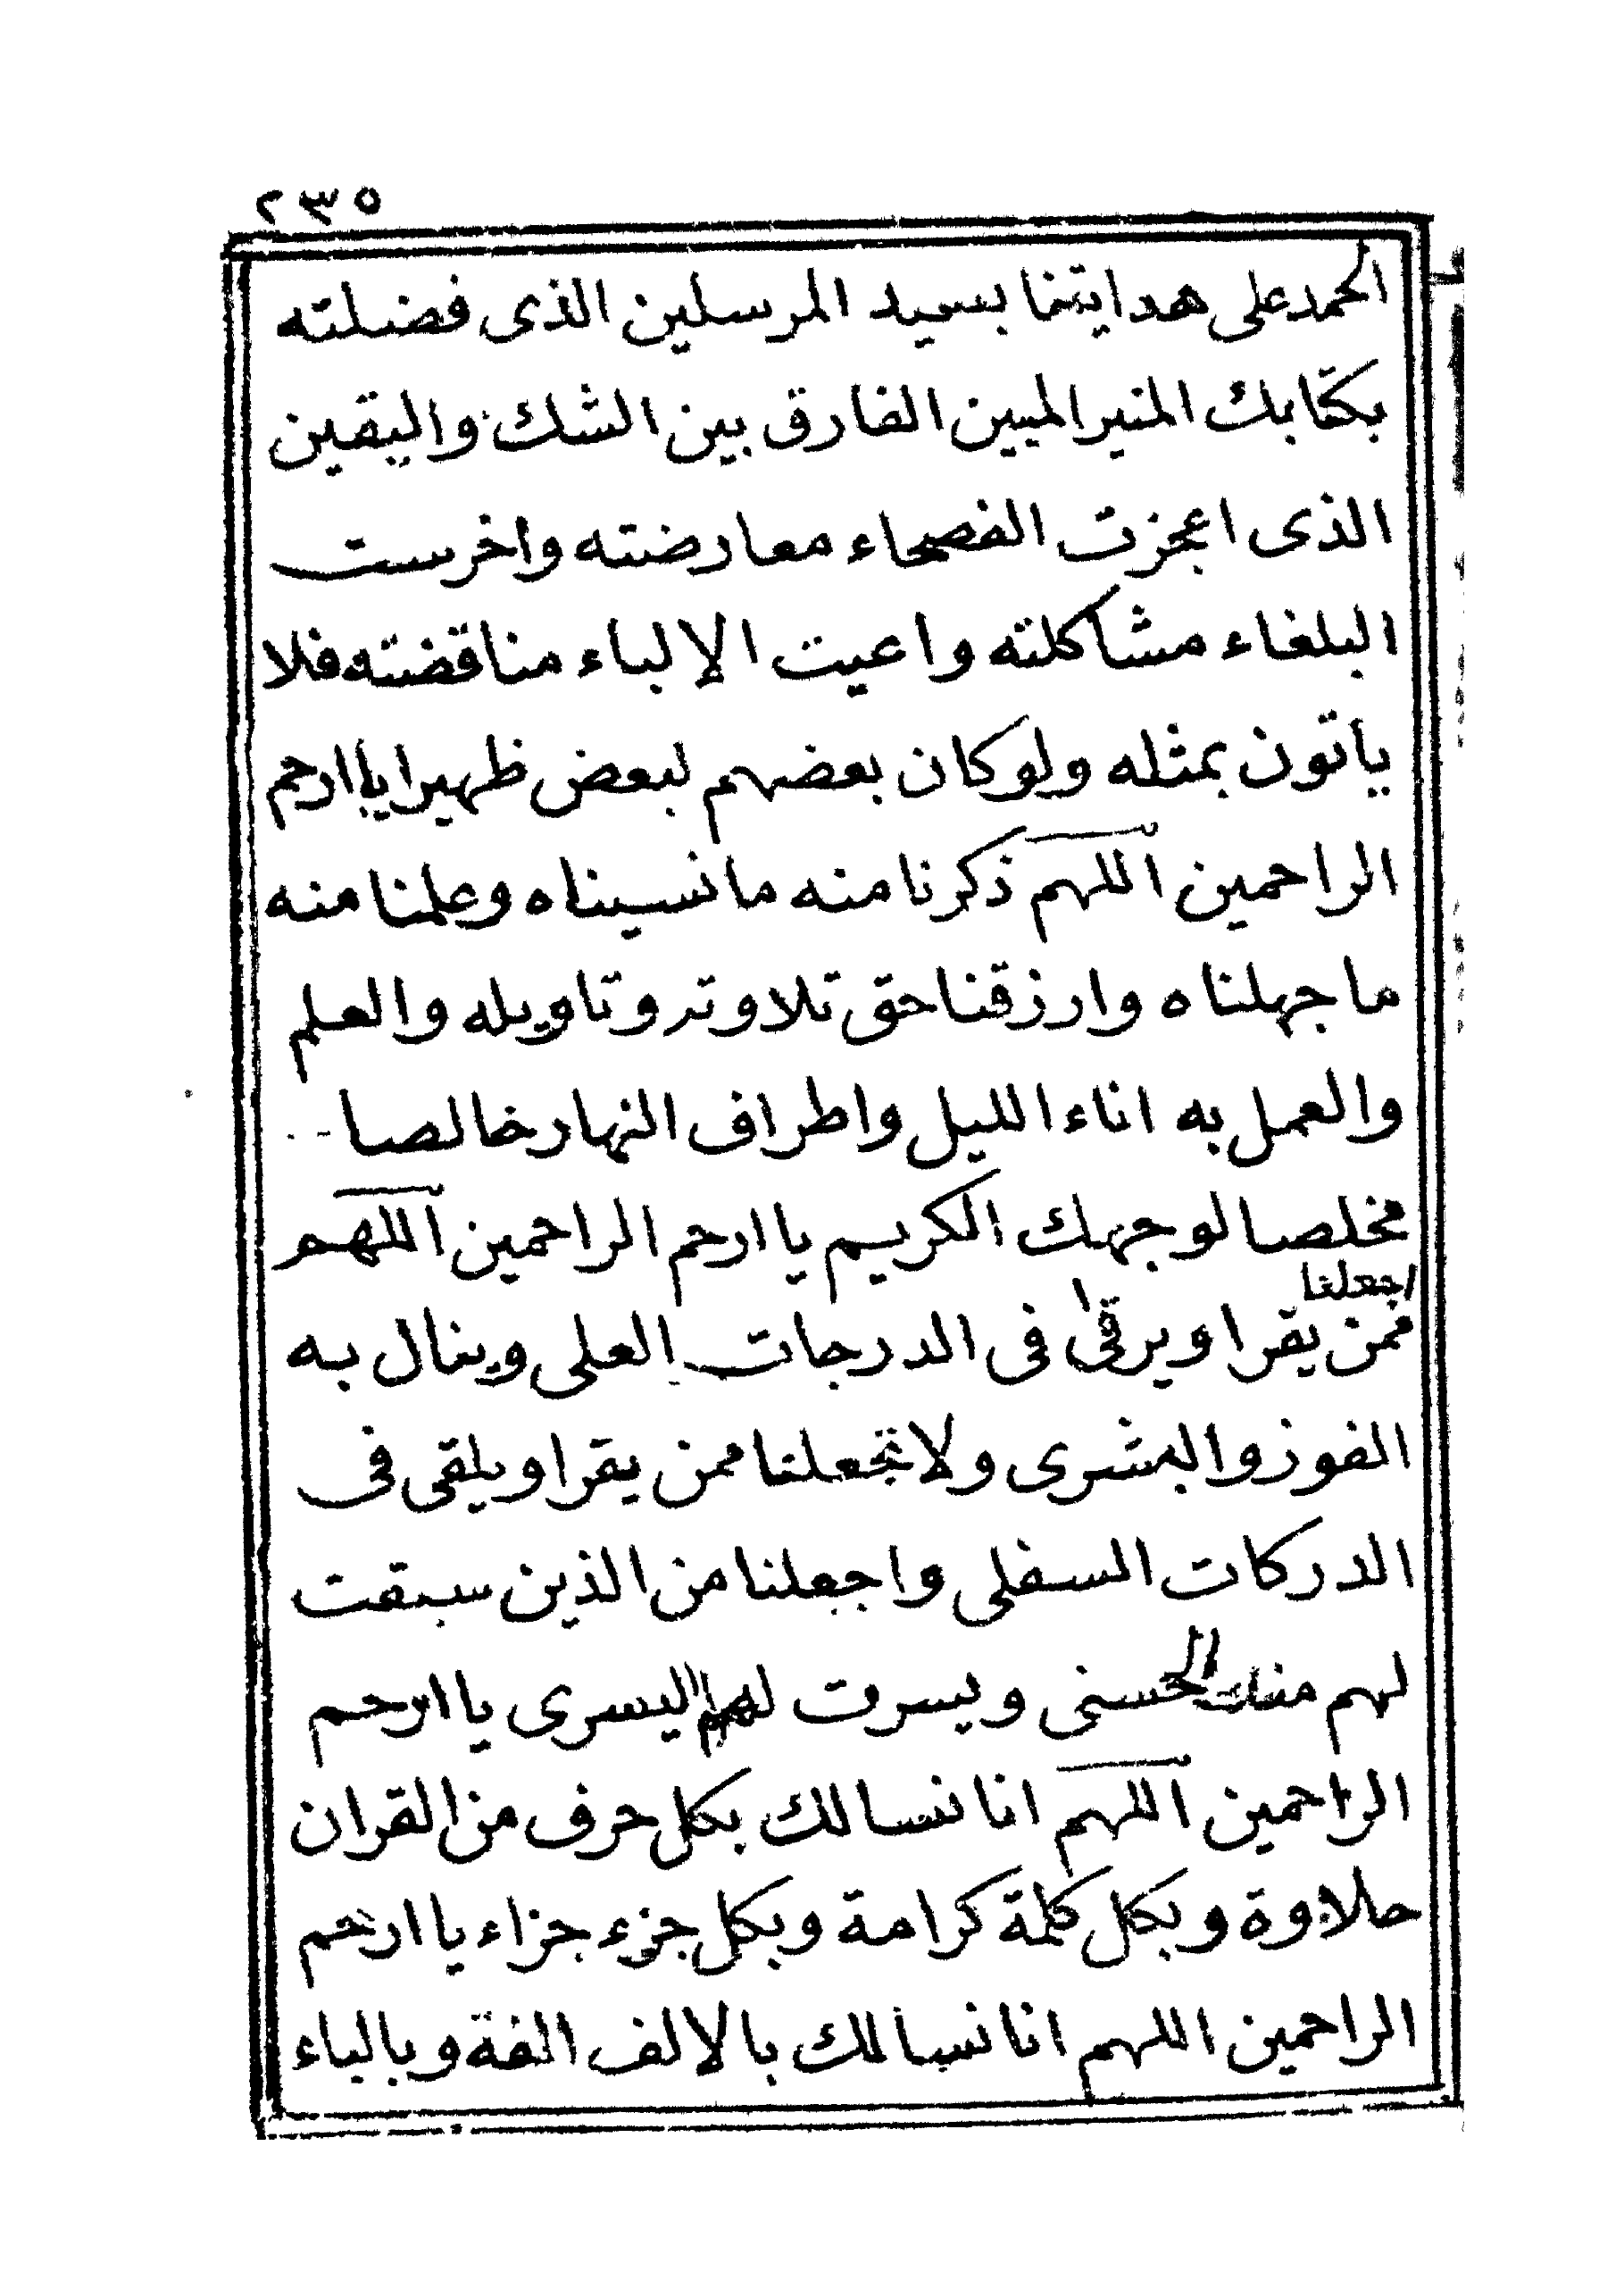 ٢٣٥
الحمد على هدايتنا بسيد المرسلين الذى فضلته
بكتابك المنير المبين الفارق بين الشك واليقين
الذى اعجزت الفصحاء معارضته واخرست
البلغاء مشاكلته واعيت الالباء مناقضته فلا
ياتون بمثله ولو كان بعضهم لبعض ظهيرا يا ارحم
الراحمين اللهم ذكرنا منه ما نسيناه وعلمنا منه
ما جهلناه وارزقنا حق تلاوته وتاويله والعلم
والعمل به اناء الليل واطراف النهار خالصا
مخلصا لوجهك الكريم يا ارحم الراحمين اللهم
اجعلنا
ممن يقرا ويرقى فى الدرجات العلى وينال به
الفوز والبشرى ولا تجعلنا ممن يقرا ويلقى فى
الدركات السفلى واجعلنا من الذين سبقت
لهم منك الحسنى ويسرت لهم اليسرى يا ارحم
الراحمين اللهم انا نسالك بكل حرف من القران
حلاوة وبكل كلمة كرامة وبكل جزء جزاء يا ارحم
الراحمين اللهم انا نسالك بالالف الفة وبالباء